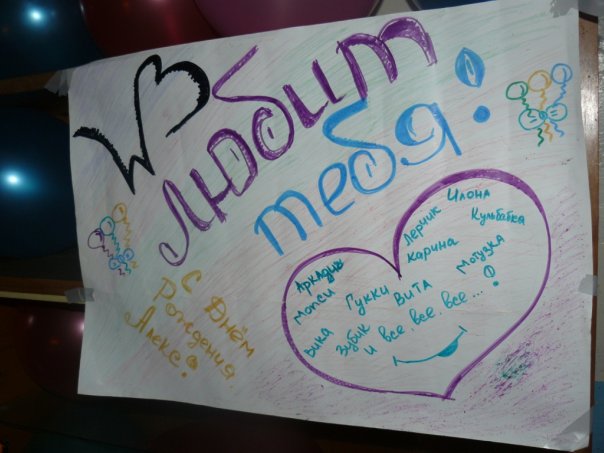 WB
любит
тебя!
С Днём
Рождения
Алекс!
Лерчик Илона
Кульбабка
Аркадий карина
Мопси Гукки ВиТА Мотузка
Вика Зубик и все, все, все...!